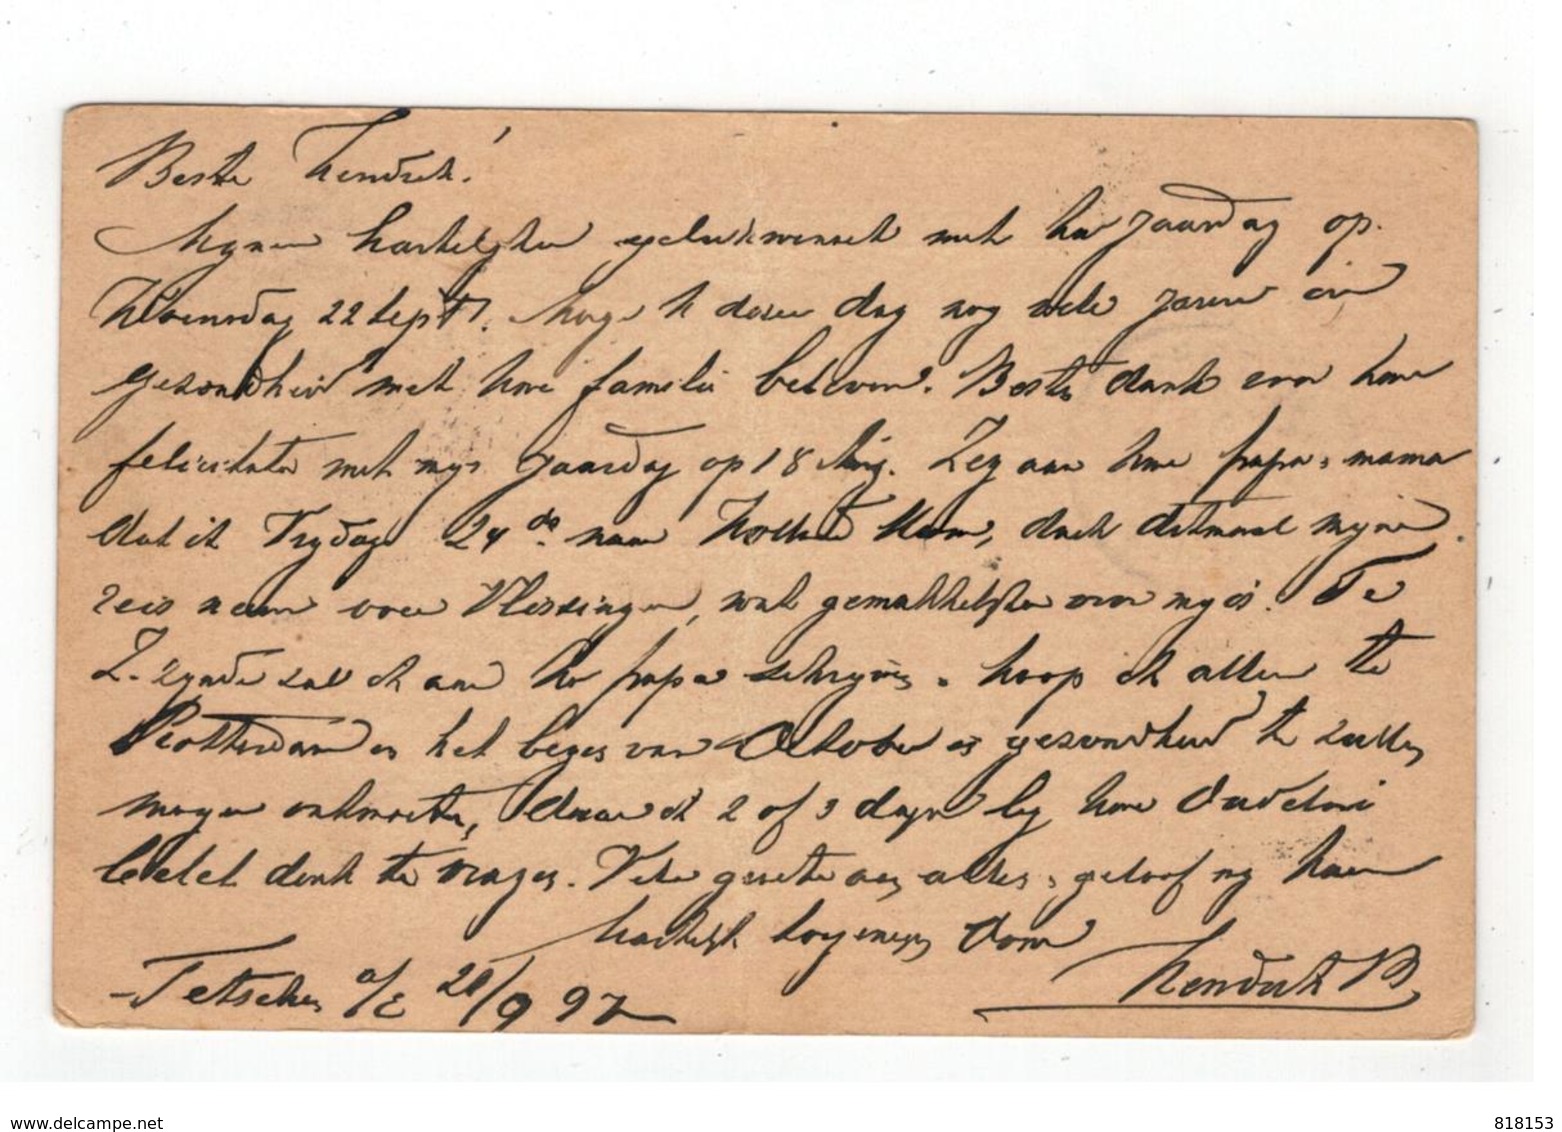 Beste Hendrik!
Mynen hartelyken gelukwensch met Uw Jaardag op
Woensdag 22 Sept. Moge U dezen dag nog vele Jaren in
gezondheid met Uwe familie beleven. Beste dank voor Uwe
felicitatie met myn Jaardag op 18 Aug. Zeg aan Uwe papa & mama
dat ik Vrydag 24 do. naar Holland kom, doch ditmaal myne
reis neem over Vlissingen, wat gemakkelyker voor my is. Te
Z. zynde zal ik aan Uw papa schryven & hoop ik allen te
Rotterdam in het begin van October in gezondheid te zullen
mogen ontmoeten, daar ik 2 of 3 dagen by Uwe
belet denk te vragen. Vele groeten aan allen & geloof my Uwen
hartelyk toegenegen Oom
Hendrik B
Tetschen a/E 20/9 97
www.delcampe.net
818153